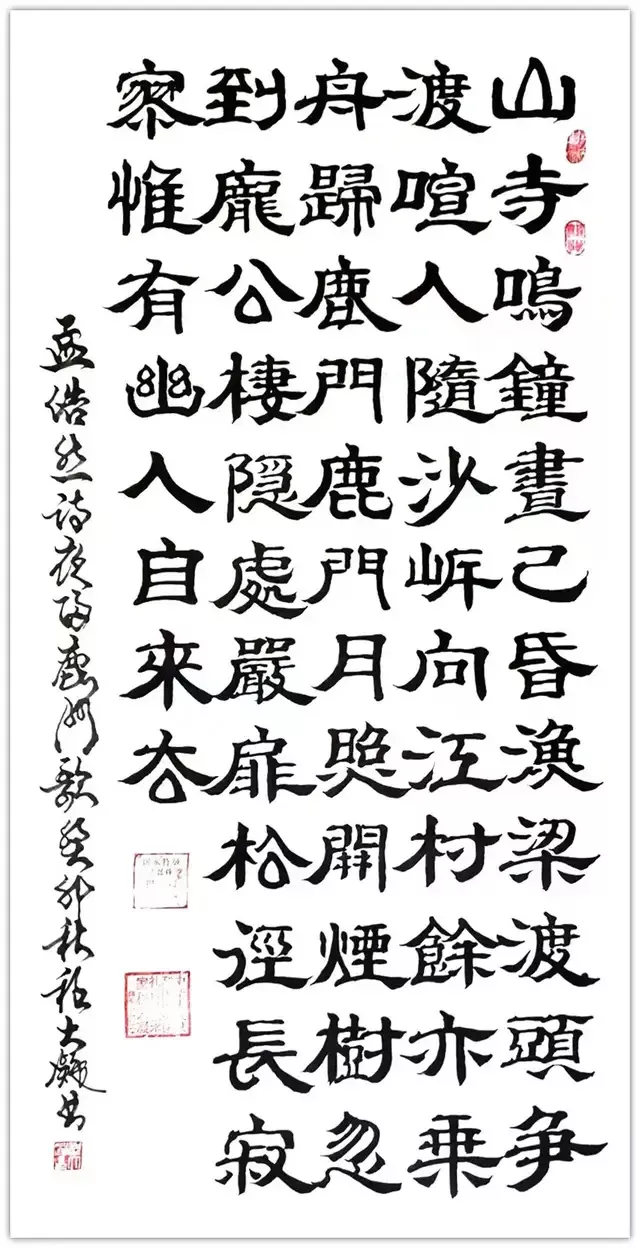 山寺鳴鐘晝已昏漁梁渡頭争
渡喧人隨沙岸向江村餘亦乗
舟歸鹿門鹿門月照開煙樹忽
到龐公棲隱處嚴扉松徑長寂
寥惟有幽人自來去
孟浩然詩夜歸鹿門歌癸卯秋程大凝書